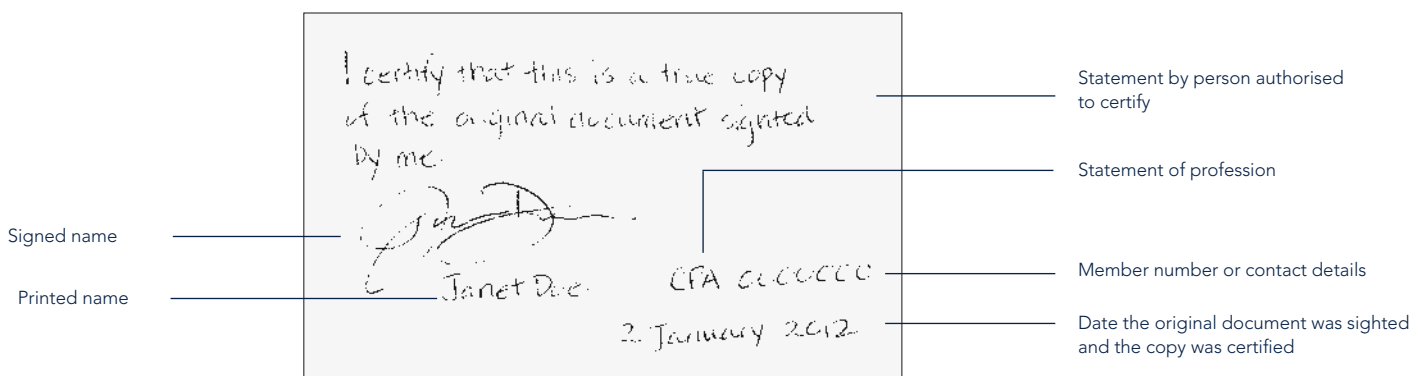 I certify that this is a true copy
of the original document sighted
by me.
Janet Doe.
CPA 0000000
2 January 2012
Signed name
Printed name
Statement by person authorised
to certify
Statement of profession
Member number or contact details
Date the original document was sighted
and the copy was certified